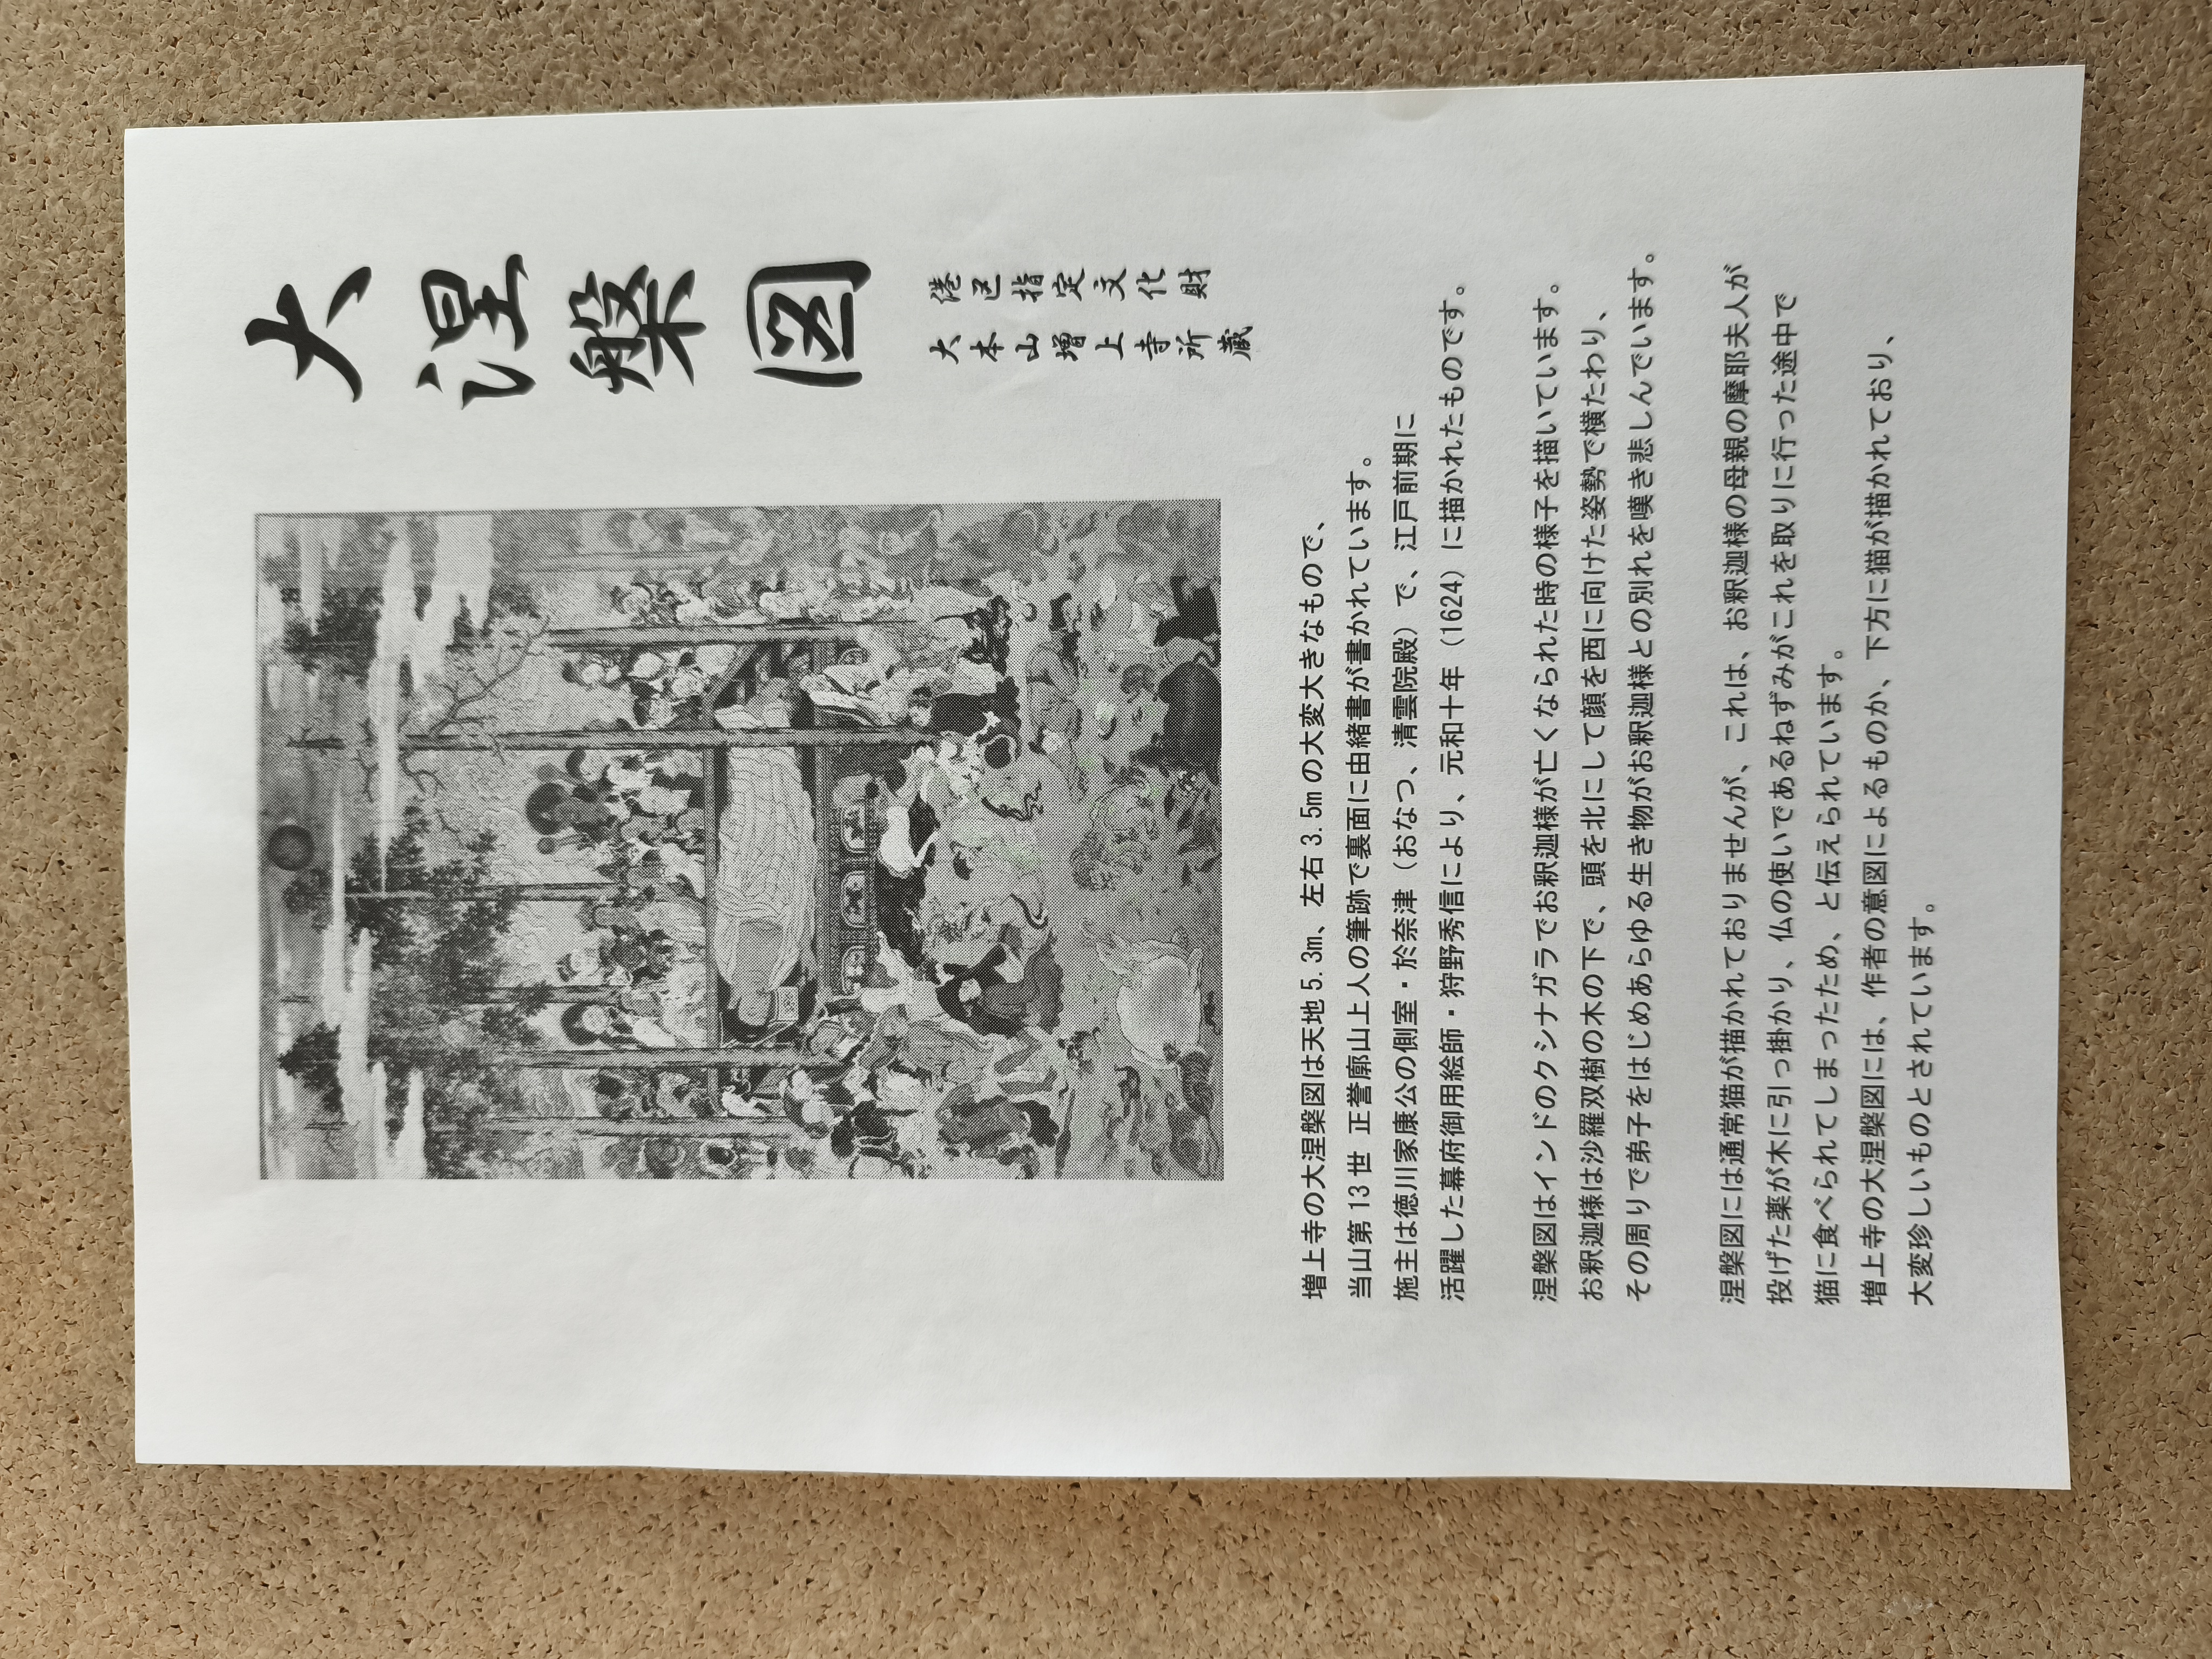 大涅槃図
港区指定文化財
大本山増上寺所蔵
増上寺の大涅槃図は天地5.3m、左右3.5mの大変大きなもので、
当山第13世 正誉廓山上人の筆跡で裏面に由緒書が書かれています。
施主は徳川家康公の側室・於奈津（おなつ、清雲院殿）で、江戸前期に
活躍した幕府御用絵師・狩野秀信により、元和十年（1624）に描かれたものです。
涅槃図はインドのクシナガラでお釈迦様が亡くなられた時の様子を描いています。
お釈迦様は沙羅双樹の木の下で、頭を北にして顔を西に向けた姿勢で横たわり、
その周りで弟子をはじめあらゆる生き物がお釈迦様との別れを嘆き悲しんでいます。
涅槃図には通常猫が描かれておりませんが、これは、お釈迦様の母親の摩耶夫人が
投げた薬が木に引っ掛かり、仏の使いであるねずみがこれを取りに行った途中で
猫に食べられてしまったため、と伝えられています。
増上寺の大涅槃図には、作者の意図によるものか、下方に猫が描かれており、
大変珍しいものとされています。